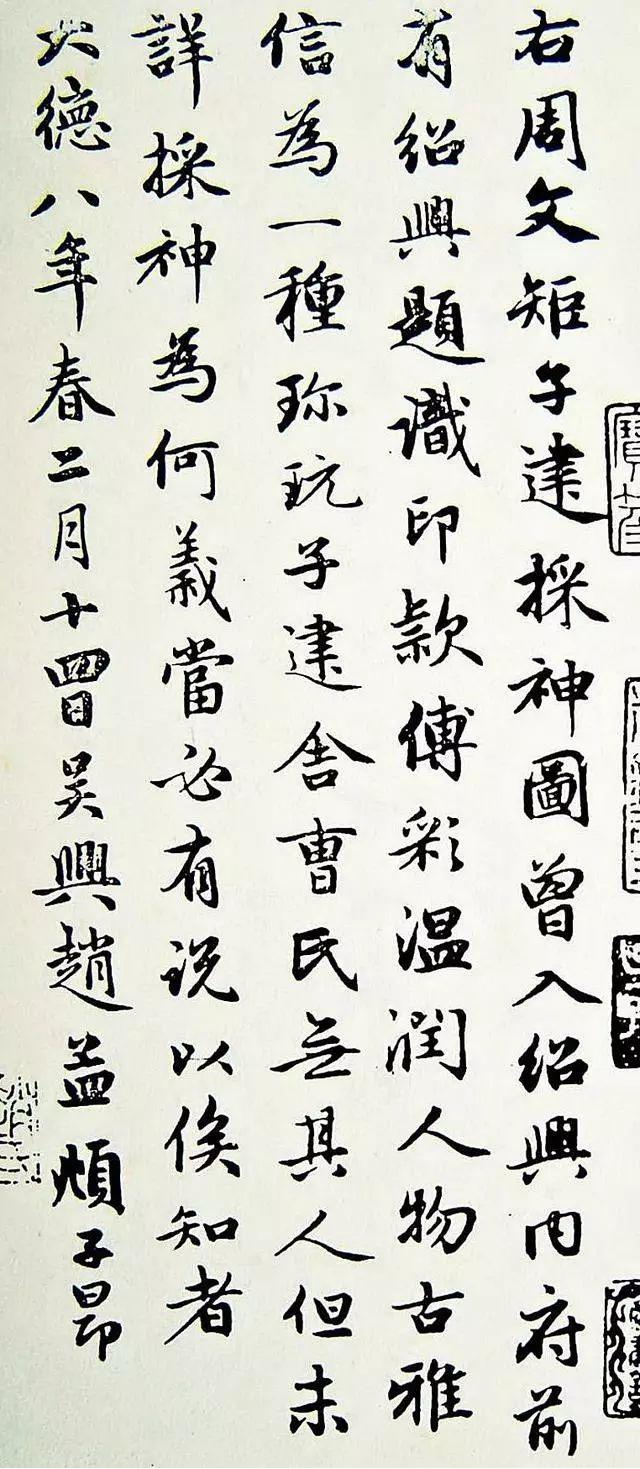 右周文矩子建採神圖曾入紹興内府前
有紹興題識印款傅彩温潤人物古雅
信為一種珎玩子建舍曹氏無其人但未
詳採神為何義當必有说以俟知者
大德八年春二月十四日吴興趙孟頫子昂